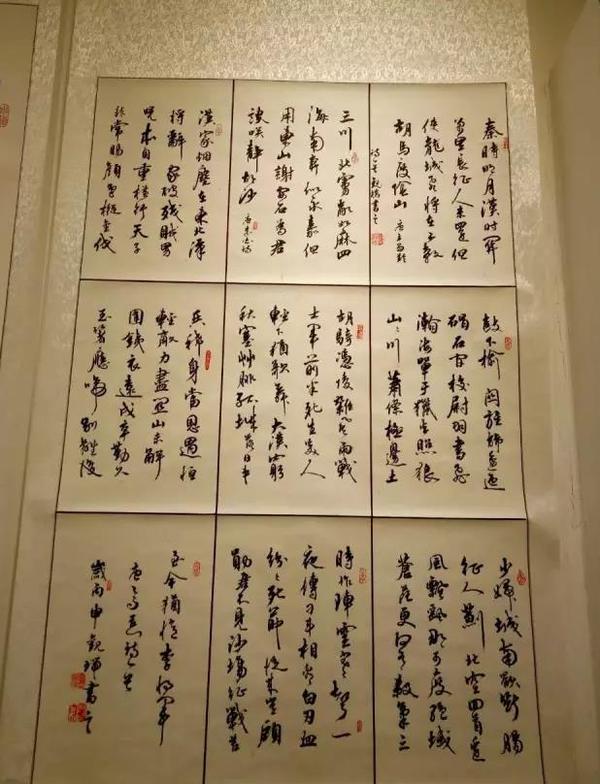 秦時明月漢時關
萬里長征人未還但
使龍城飛將在不教
胡馬度陰山 唐王昌齡
詩一首觀瑞書之
三川北虜亂如麻四
海南奔似永嘉但
用東山謝安石為君
談笑靜胡沙 唐李白詩
漢家烟塵在東北漢
將辭家破殘賊男
兒本自重橫行天子
非常賜顏色摐金伐
鼓下榆關旌旆逶迤
碣石間校尉羽書飛
瀚海單于獵火照狼
山山川蕭條極邊土
胡騎憑陵雜風雨戰
士軍前半死生美人
帳下猶歌舞大漠窮
秋塞草腓孤城落日鬥
兵稀身當恩遇恒
輕敵力盡關山未解
圍鐵衣遠戍辛勤久
玉箸應啼別離後
少婦城南欲斷腸
征人薊北空回首邊
風飄飄那可度絕域
蒼茫更何有殺氣三
時作陣雲寒聲一
夜傳刁斗相看白刃血
紛紛死節從來豈顧
勳君不見沙場征戰苦
至今猶憶李將軍
唐高適詩一首
歲丙申觀瑞書之